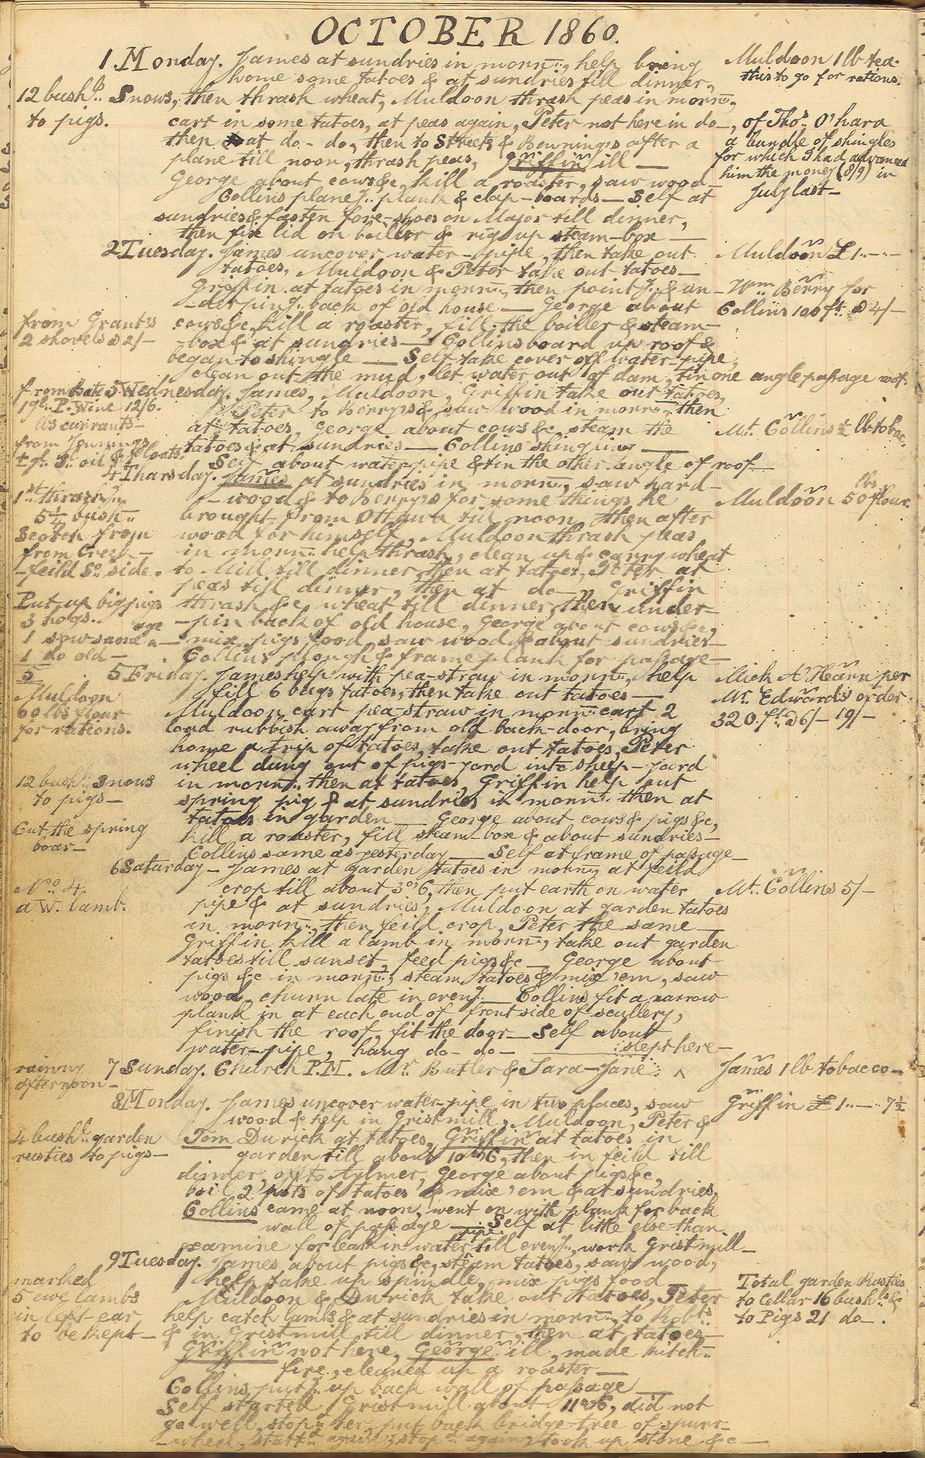 OCTOBER 1860.
1. Monday. James at sundries in morng., help bring
home some tatoes & at sundries till dinner,
Muldoon 1 lb tea.
this to go for rations.
12 bushls. Snows, then thrash wheat, Muldoon thrash peas in morng.,
to pigs. cart in some tatoes, at peas again, Peter not here in do-
then at do- do, then to Streets & Benning's after a
plane till noon, thrash peas, Griffin ill —
of Thos. O'hara
a bundle of shingles
for which I had advanced
him the money (8/9) in
July last—
George about cows &c, kill a roaster, saw wood—
Collins plane plank & clap-boards — Self at
sundries & fasten fore-shoes on Major till dinner,
then fix lid on boiler & rig up steam-box —
2 Tuesday. James uncover water-pipe, then take out
Muldoon £1..-..-
tatoes, Muldoon & Peter take out tatoes—
Griffin at tatoes in morng., then point & un-
Wm. Berry for
-derping. back of old house — George about
Collins 100 ft. @ 4/-
from Grant's
2 shovels @ 2/-
cows &c, kill a roaster, fill the boiler & steam-
-box & at sundries — Collins board up roof &
began to shingle — Self take cover off water-pipe,
clean out the mud, let water out of dam, tin one angle passage roof.
3 Wednesday. James, Muldoon, Griffin take out tatoes,
P. Wine 12/6.
Peter to Berry's & saw wood in morng., then
as currants—
at tatoes, George about cows &c, steam the
Mr. Collins ½ lb tobac.
tatoes & at sundries — Collins shingling —
Self about water-pipe & tin the other angle of roof—
4 Thursday. James at sundries in morng., saw hard-
-wood & to Berry's for some things he
Muldoon 50 lbs flour.
1st thrashg.
5¼ bush.
Scotch from
from Creek-
-feild So. side.
brought from Ottawa till noon, then after
wood for himself, Muldoon thrash peas
in morng. help thrash, clean up & carry wheat
to Mill till dinner, then at tatoes, Peter at
peas till dinner, then at do— Griffin
thrash &c wheat till dinner, then under-
Put up big pigs
3 hogs.
1 sow same age
1 do old—
5
-pin back of old house, George about cows &c,
mix pigs food, saw wood & about sundries—
Collins plough & frame plank for passage—
5 Friday. James help with pea-straw in morng., help
fill 6 bags tatoes, then take out tatoes —
Mick A'Hearn per
Mr. Edward's order
320 ft. @ 6/- 19/-
Muldoon
60 lbs flour
for rations.
Muldoon cart pea-straw in morng. cart 2
load rubbish away from old back-door, bring
home a trip of tatoes, take out tatoes, Peter
wheel dung out of pigs-yard into sheep-yard
12 bushls. Snows
to pigs—
in morng. then at tatoes, Griffin help put
spring pig & at sundries in morng. then at
tatoes in garden — George about cows & pigs &c,
Cut the spring
boar—
kill a roaster, fill steam-box & about sundries—
Collins same as yesterday — Self at frame of passage—
6 Saturday— James at garden tatoes in morng. at feild
No. 4.
a W. lamb.
crop till about 3 or 6, then put earth on water
Mr. Collins 5/-
pipe & at sundries, Muldoon at garden tatoes
in morng., then feild crop, Peter the same —
Griffin kill a lamb in morng., take out garden
tatoes till sunset, feed pigs &c — George about
pigs &c in morng., steam tatoes & mix 'em, saw
wood, churn late in eveng. — Collins fit a narrow
plank in at each end of front side of scullery,
finish the roof, fit the door — Self about
water-pipe, hang do- do-
slept here—
rainny
afternoon—
7 Sunday. Church P.M. Mr. Butler & Sara-Jane ^
James 1 lb tobacco—
8 Monday. James uncover water-pipe in two places, saw
Griffin £1..-..7½
wood & help in Grist mill, Muldoon, Peter &
4 bushls. garden
rusties to pigs—
Tom Durick at tatoes, Griffin at tatoes in
garden till about 10 or 6, then in feild till
dinner, off to Aylmer, George about pigs &c,
boil 2 pots of tatoes & mix 'em & at sundries,
Collins came at noon, went on with plank for back
wall of passage — Self at little else than
examine for leak in water pipe till eveng., work Grist mill—
9 Tuesday. James about pigs &c, steam tatoes, saw wood,
marked
5 ewe lambs
in left ear
to be kept—
help take up spindle, mix pigs food —
Total garden Rusties
to Cellar 16 bushls. &
to Pigs 21 do—.
Muldoon & Durick take out tatoes, Peter
help catch lambs & at sundries in morng., to Robts.
& in Grist mill till dinner, then at tatoes—
Griffin not here, George ill, made kitchn.
fire, cleaned up a roaster—
Collins put up back wall of passage —
Self started Grist mill about 11 or 6, did not
go well, stop'd her, put back bridge-tree of spurr-
-wheel, start'd again, stop'd again, took up stone &c—